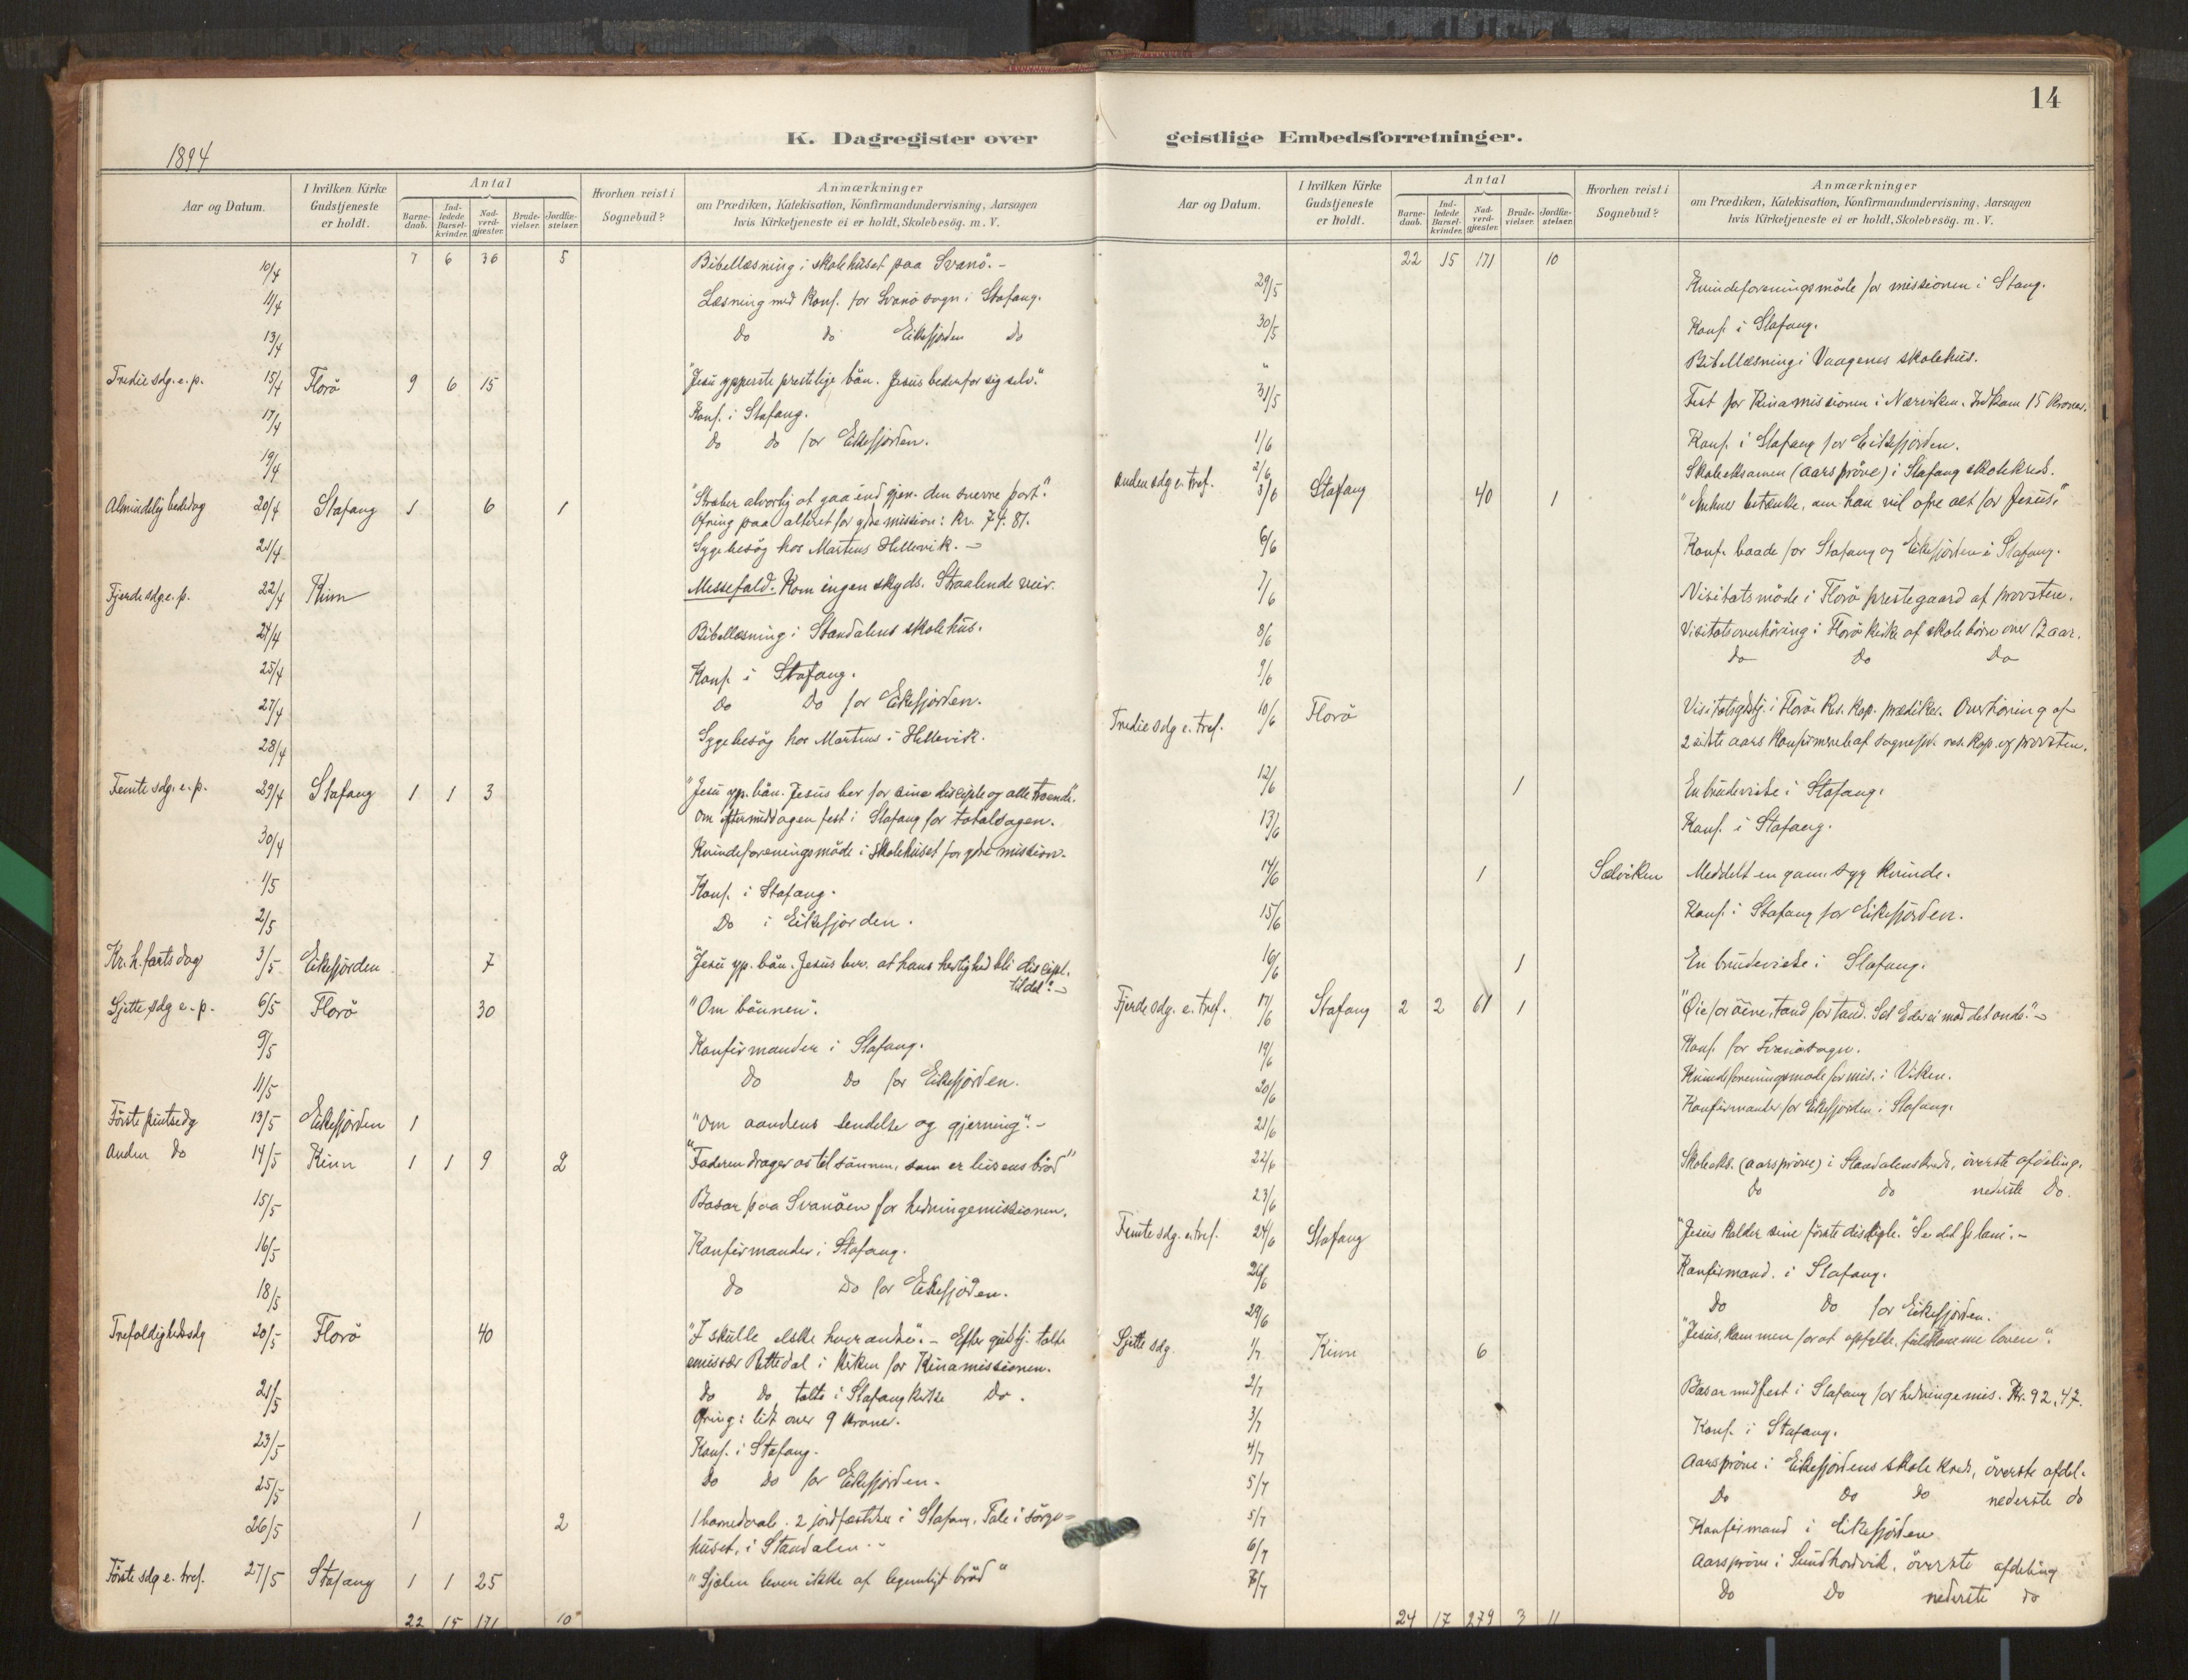 14
K. Dagregister over
geistlige Embedsforretninger.
1894
Aar og Datum.
I hvilken Kirke Gudstjeneste er holdt.
Antal
Barne-daab.
Ind-ledede Barsel-kvinder.
Nad-verd-gjæster.
Brude-vielser.
Jordfæ-stelser.
Hvorhen reist i Sognebud?
Anmærkninger
om Prædiken, Katekisation, Konfirmandundervisning, Aarsagen
hvis Kirketjeneste ei er holdt, Skolebesög. m. V.
7 6 36 5
10/4 Bibellæsning i skolehuset paa Svanö. -
11/4 Læsning med Konf. for Svanö sogn i Stafang.
13/4 Do do Eikefjorden Do
Tredie sdg. e. p. 15/4 Florö 9 6 15 "Jesu ypperste prestelige bön. Jesus beder for sig selv."
17/4 Konf. i Stafang.
19/4 Do do for Eikefjorden.
Almindelig bededag 20/4 Stafang 1 6 1 "Stræber alvorlig at gaa ind gjen. den snevre port."
Ofring paa alteret for ydre mission: Kr. 74.81.
21/4 Sygebesög hos Martens Hellevik. -
Fjerde sdg. e. p. 22/4 Kinn Messefald. Kom ingen skyds. Straalende veir.
24/4 Bibellæsning i Standalens skolehus.
25/4 Konf. i Stafang.
27/4 Do Do for Eikefjorden.
28/4 Sygebesög hos Martens i Hellevik.
Femte sdg. e. p. 29/4 Stafang 1 1 3 "Jesu yp. bön. Jesus ber for sine disciple og alle troende".
Om eftermiddagen fest i Stafang for totalsagen.
30/4 Kvindeforeningsmöde i skolehuset for ydre mission.
1/5 Konf. i Stafang.
2/5 Do i Eikefjorden.
Kr. h. fartsdag 3/5 Eikefjorden 7 "Jesu yp. bön. Jesus ber. at hans herlighed bli discipl.
til del". -
Sjette sdg e. p. 6/5 Florö 30 "Om bönnen".
9/5 Konfirmander i Stafang.
11/5 Do Do for Eikefjorden.
Förste pintsedg 13/5 Eikefjorden 1 "Om aandens sendelse og gjerning". -
Anden do 14/5 Kinn 1 1 9 2 "Faderen drager os til sönnen, som er livsens bröd"
15/5 Basar paa Svanöen for hedningemissionen.
16/5 Konfirmander i Stafang.
18/5 Do Do for Eikefjorden.
Trefoldighedssdg 20/5 Florö 40 "I skulle elske hverandre". - Efter gudstj. talte
emissær Rettedal i kirken for Kinamissionen.
21/5 Do Do talte i Stafang kirke Do.
Ofring: lidt over 9 kroner.
23/5 Konf. i Stafang.
25/5 Do Do for Eikefjorden.
26/5 1 2 1 barnedaab. 2 jordfæstelser i Stafang. Tale i sörge=
huset i Standalen. -
Förste sdg e. tref. 27/5 Stafang 1 1 25 "Sjælen lever ikke af legemligt bröd"
22 15 171 10
Aar og Datum.
I hvilken Kirke Gudstjeneste er holdt.
Antal
Barne-daab.
Ind-ledede Barsel-kvinder.
Nad-verd-gjæster.
Brude-vielser.
Jordfæ-stelser.
Hvorhen reist i Sognebud?
Anmærkninger
om Prædiken, Katekisation, Konfirmandundervisning, Aarsagen
hvis Kirketjeneste ei er holdt, Skolebesög. m. V.
22 15 171 10
29/5 Kvindeforeningsmöde for missionen i Stang.
30/5 Konf. i Stafang.
" Bibellæsning i Vaagenes skolehus.
31/5 Fest for Kinamissionen i Nærviken. Indkom 15 Kroner.
1/6 Konf. i Stafang for Eikefjorden.
2/6 Skoleeksamen (aarspröve) i Stafang skolekreds.
Anden sdg e. tref. 3/6 Stafang 40 1 "Enhver betænke, om han vil ofre alt for Jesus."
6/6 Konf. baade for Stafang og Eikefjorden i Stafang.
7/6 Visitatsmöde i Florö prestegaard af provsten.
8/6 Visitatsoverhöring i Florö kirke af skolebörn over 12 aar.
9/6 do Do Do
Tredie sdg e. tref. 10/6 Florö Visitatsgdstj. i Florö. Res. Kap. prædiker. Overhöring af
2 sidste aars konfirmerede af sognepr. res. kap. og provsten.
12/6 1 En brudevielse i Stafang.
13/6 Konf. i Stafang.
14/6 1 Sælviken Meddelt en gam. syg kvinde.
15/6 Konf. i Stafang for Eikefjorden.
16/6 1 En brudevielse i Stafang.
Fjerde sdg. e. tref. 17/6 Stafang 2 2 61 1 "Öie for öine, tand for tand. Set Eder ei mod det onde". -
19/6 Konf. for Svanö sogn.
20/6 Kvindeforeningsmöde for mis. i Viken.
21/6 Konfirmander for Eikefjorden i Stafang.
22/6 Skoleeks. (aarspröve) i Standalens kreds, överste afdeling.
23/6 Do do nederste Do.
Femte sdg. e. tref. 24/6 Stafang "Jesus kalder sine förste disciple. "Se det Gs lam". -
26/6 Konfirmand. i Stafang.
29/6 Do Do for Eikefjorden.
Sjette sdg. 1/7 Kinn 6 "Jesus, kommen for at opfylde, fuldkomme loven".
2/7 Basar med fest i Stafang for hedningemis. Kr. 92,47.
3/7 Konf. i Stafang.
4/7 Aarspröve i Eikefjordens skolekreds, överste afdel.
5/7 Do Do do nederste do
5/7 Konfirmand i Eikefjorden
6/7 Aarspröve i, överste afdeling
7/7 Do Do nederste do
24 17 279 3 11